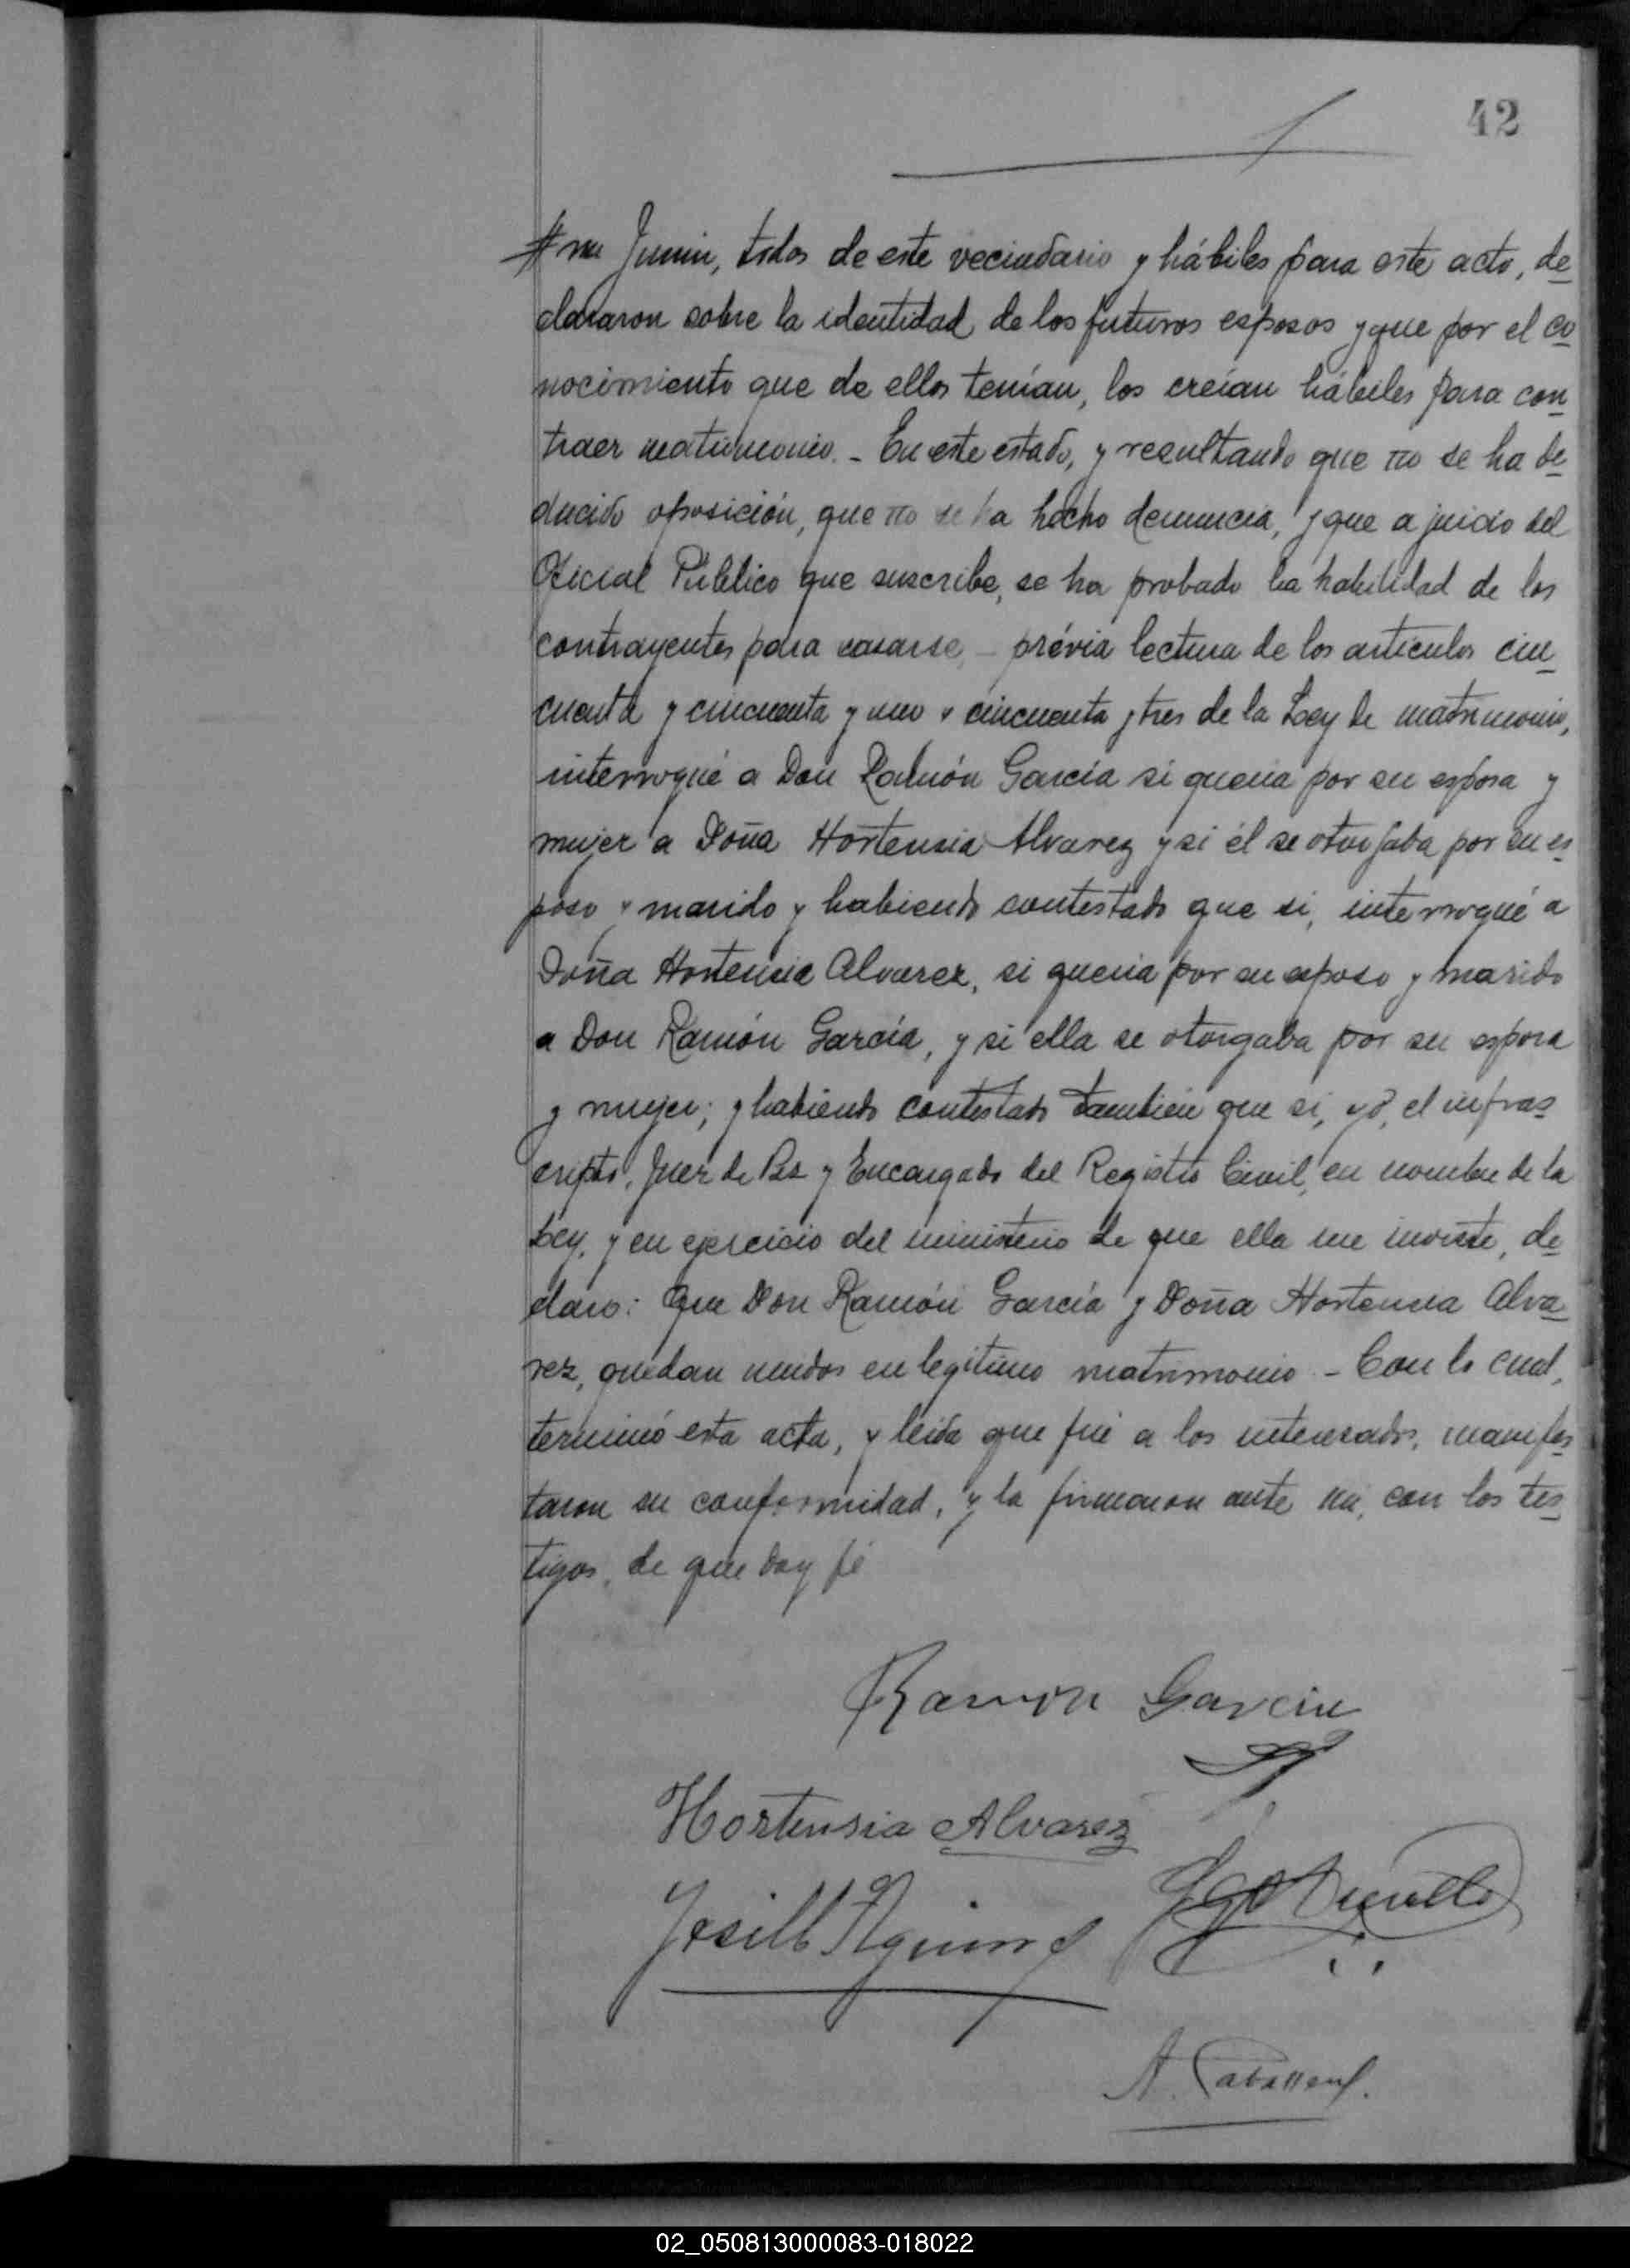 42
en Junin, todos de este vecindario y hábiles para este acto, de
clararon sobre la identidad de los futuros esposos y que por el co
nocimiento que de ellos tenían, los creían hábiles para con
traer matrimonio. - En este estado, y resultando que no se ha de
ducido oposición, que no se ha hecho denuncia, y que a juicio del
Oficial Público que suscribe, se ha probado la habilidad de los
contrayentes para casarse, - prévia lectura de los artículos cin
cuenta y cincuenta y uno y cincuenta y tres de la Ley de matrimonio,
interrogué a Don Ramón García si queria por su esposa y
mujer a Doña Hortensia Alvarez y si él se otorgaba por su es
poso y marido y habiendo contestado que si, interrogué a
Doña Hortensia Alvarez, si queria por su esposo y marido
a Don Ramón García, y si ella se otorgaba por su esposa
y mujer; y habiendo contestado tambien que si, yo, el infras
cripto, Juez de Paz y Encargado del Registro Civil, en nombre de la
Ley, y en ejercicio del ministerio de que ella me inviste, de
claro: Que Don Ramón García y Doña Hortensia Alva
rez, quedan unidos en legítimo matrimonio - Con lo cual,
terminó esta acta, y leida que fué a los interesados, manifes
taron su conformidad, y la firmaron ante mi, con los tes
tigos, de que doy fé
Ramon Garcia
Hortensia Alvarez
A. Caballero.
02_050813000083-018022